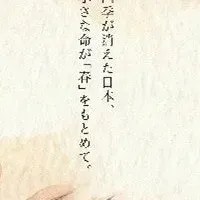 四季が消えた日本、
小さな命が「春」をもとめて。